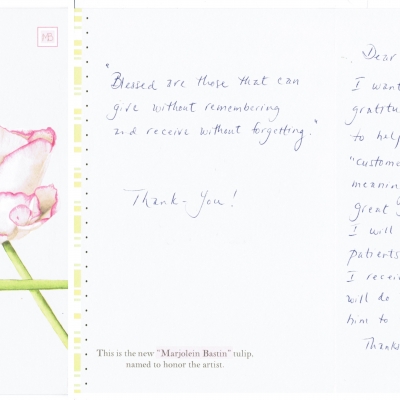 MB
"Blessed are those that can
give without remembering
and receive without forgetting."
Thank-You!
This is the new "Marjolein Bastin" tulip.
named to honor the artist.
Dear
I want
gratitu
to help
"custome
meanin
great
I will
patients
I recei
will do
him to
Thanks